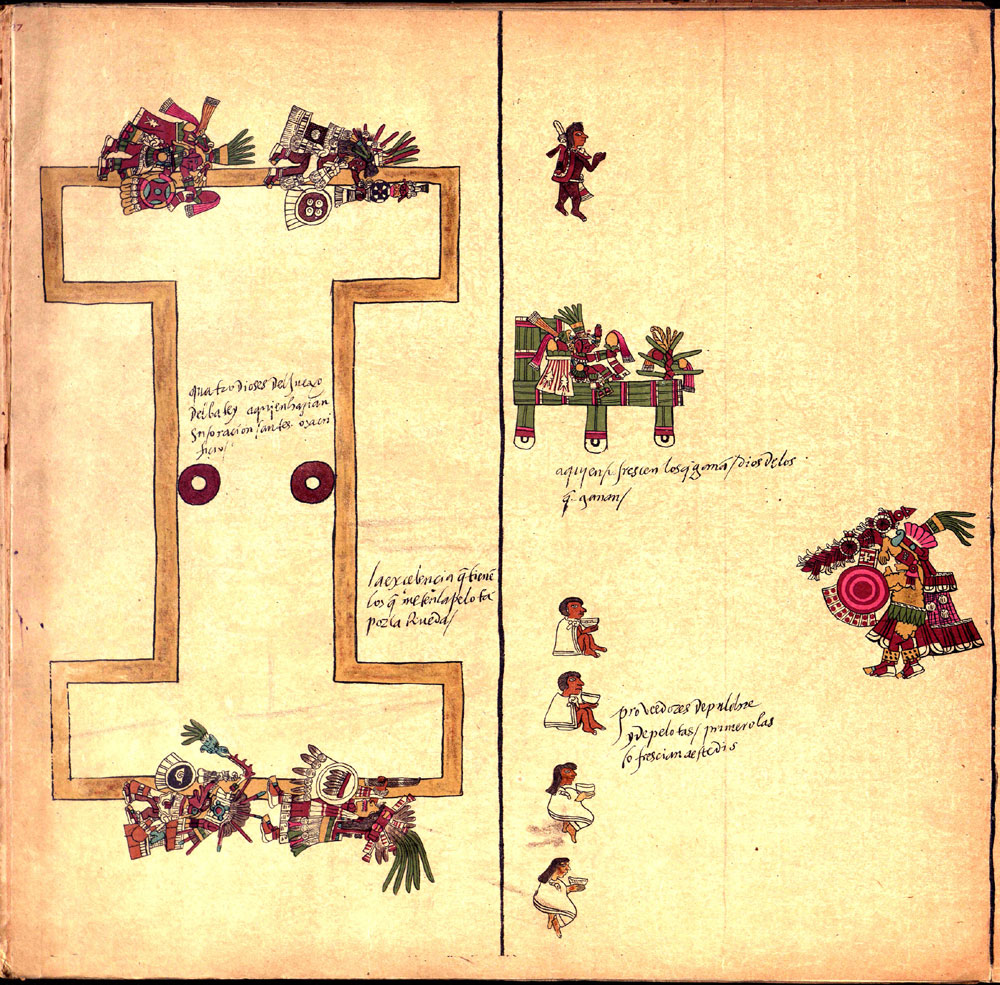 27
quatro dioses del juego
del batey aquien hazian
oracion antes
ficio/
la excelencia q̃ tiene
los q̃ meten la pelota
por la Rueda/
aquien ofrescien los q̃ ganã/ dios de los
q̃ ganan/
proveedores de pulcre
y de pelotas/ primero las
ofrescian a este dios